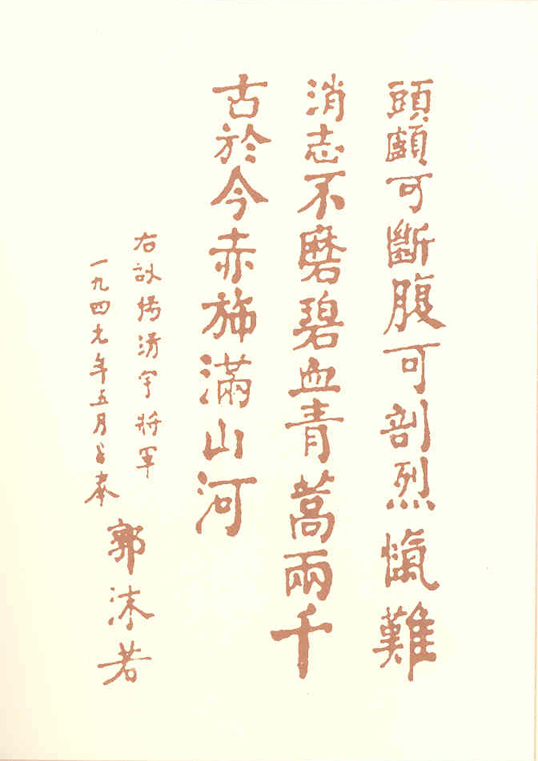 頭顱可斷腹可剖烈愾難
消志不磨碧血青蒿兩千
古於今赤旆滿山河
右詠楊靖宇將軍
一九四九年五月
郭沫若